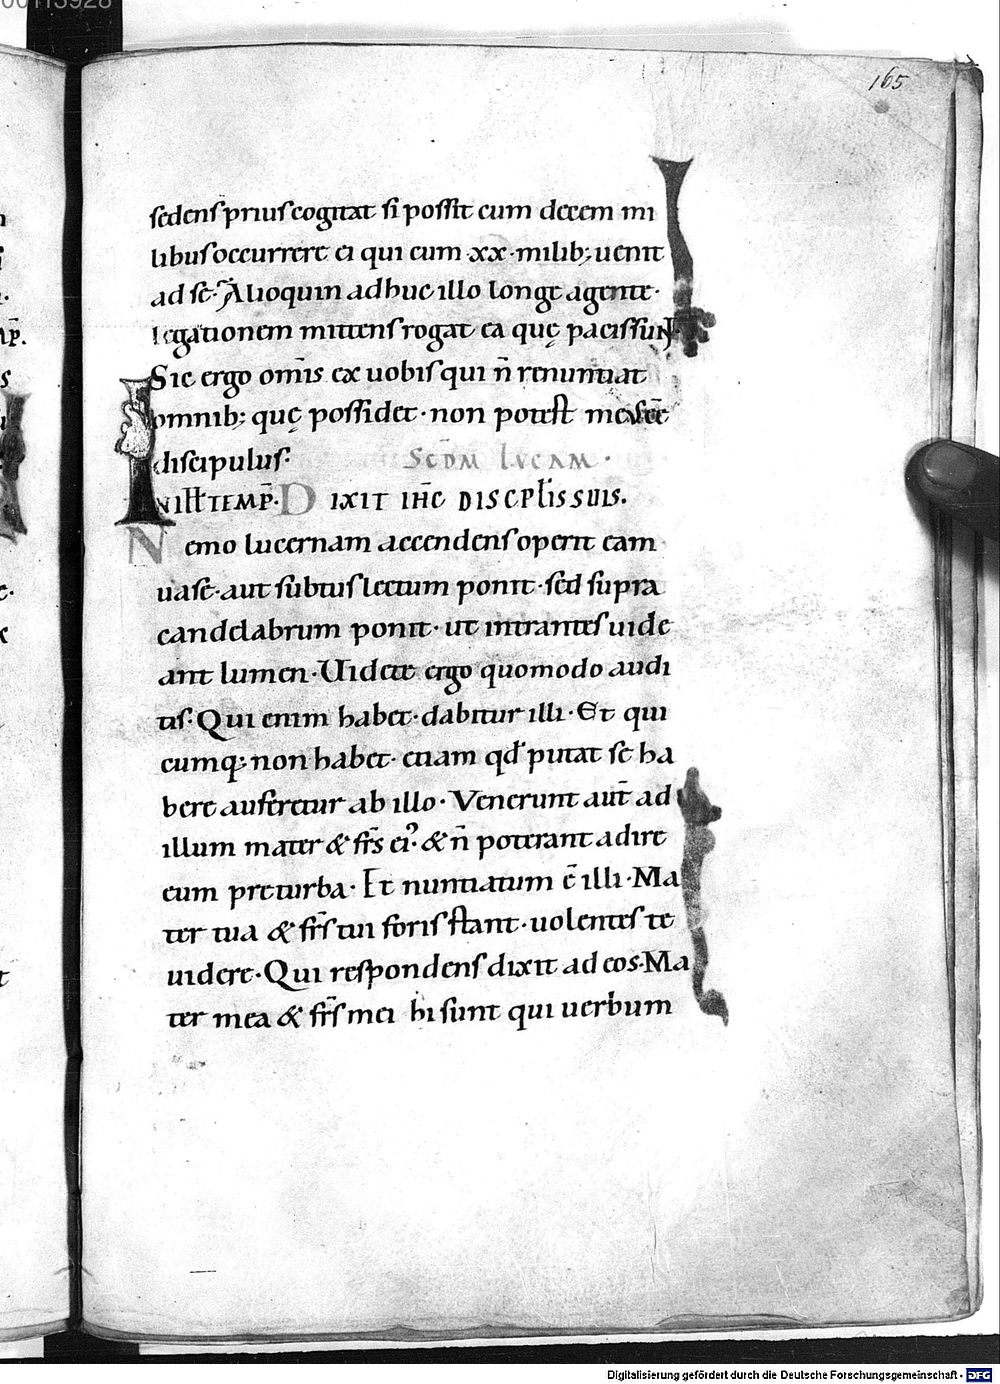 165
sedens prius cogitat si possit cum decem mi
libus occurrere ei qui cum ·xx· milib; uenit
ad se· Alioquin adhuc illo longe agente·
legationem mittens rogat ea quę pacis sunt·
Sic ergo om̅is ex uobis qui n̅ renuntiat
omnib; quę possidet· non potest meus ee̅
discipulus· SCD̅M LVCAM·
IN ILL TEMP̅· DIXIT IH̅C DISCPLIS SUIS.
Nemo lucernam accendens operit eam
uase· aut subtus lectum ponit· sed supra
candelabrum ponit· ut intrantes uide
ant lumen· Uidete ergo quomodo audi
tis· Qui enim habet· dabitur illi· Et qui
cumq; non habet· etiam qd̅ putat se ha
bere auferetur ab illo· Venerunt aut̅ ad
illum mater & fr̅s ei᾿· & n̅ poterant adire
eum pre turba· Et nuntiatum e̅ illi· Ma
ter tua & fr̅s tui foris stant· uolentes te
uidere· Qui respondens dixit ad eos· Ma
ter mea & fr̅s mei hi sunt qui uerbum
Digitalisierung gefördert durch die Deutsche Forschungsgemeinschaft - DFG